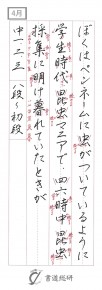 4月
ぼくはペンネームに虫がついているように
学生時代、昆虫マニアで、四六時中、昆虫
採集に明け暮れていたときが
中一二三 八段〜初段
書道総研